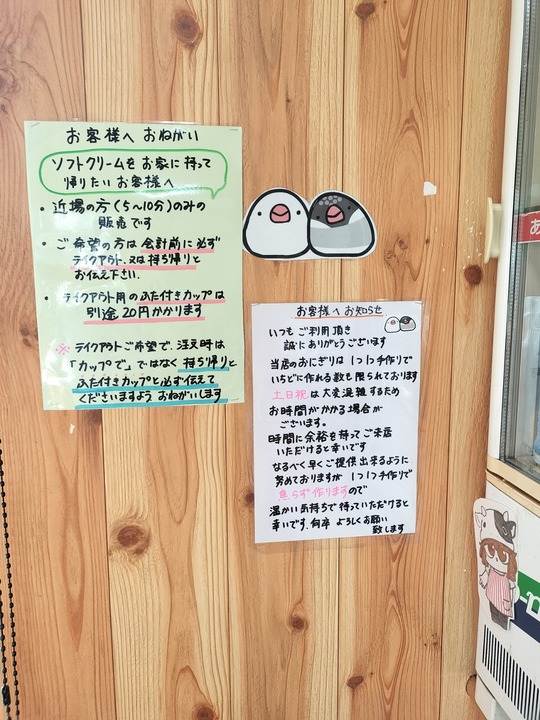 お客様へ おねがい
ソフトクリームを お家に 持って
帰りたい お客様へ
・近場の方(5〜10分)のみの
販売です
・ご希望の方は 会計前に必ず
テイクアウト.又は持ち帰りと
お伝え下さい.
・テイクアウト用のふた付きカップは
別途 20円かかります
※テイクアウトご希望で、注文時は
「カップで」ではなく 持ち帰りと
ふた付きカップと必ず伝えて
くださいますよう おねがいします
お客様へ お知らせ
いつも ご利用頂き
誠にありがとうございます
当店のおにぎりは 1つ1つ手作りで
いちどに作れる数も限られております
土日祝は大変混雑するため
お時間がかかる場合が
ございます。
時間に余裕を持ってご来店
いただけると幸いです
なるべく早くご提供出来るように
努めておりますが 1つ1つ手作りで
焦らず作りますので
温かい気持ちで待っていただけると
幸いです.何卒 よろしくお願い
致します
あ